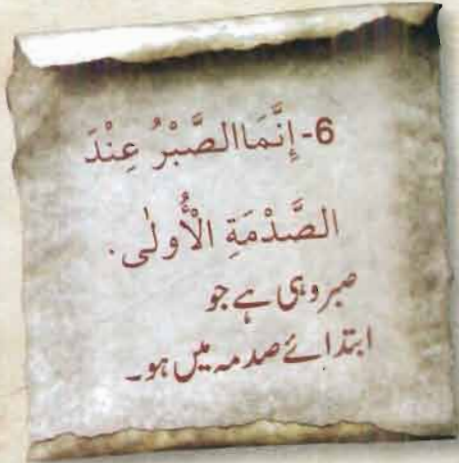 6- إِنَّمَاالصَّبْرُ عِنْدَ
الصَّدْمَةِ الْأُولٰى.
صبر وہی ہے جو
ابتدائے صدمہ میں ہو۔